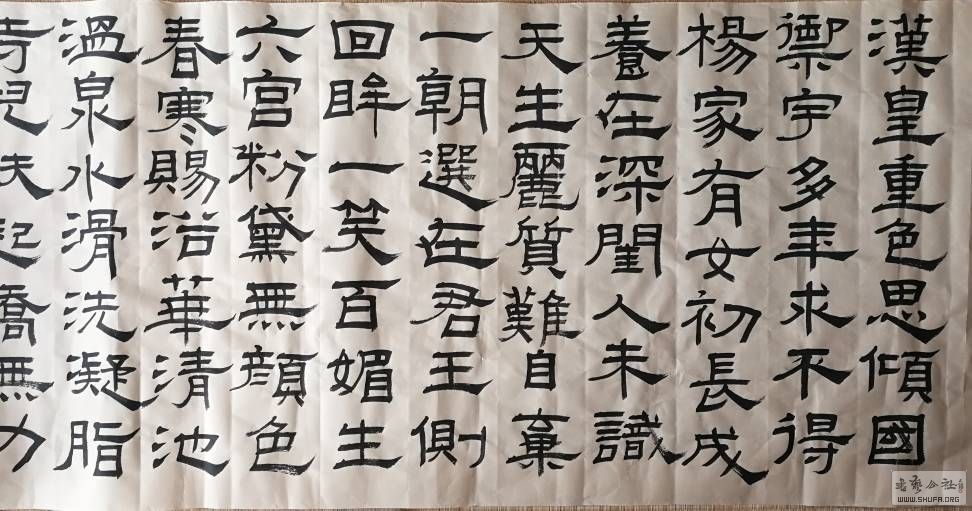 漢皇重色思傾國
禦宇多年求不得
楊家有女初長成
養在深閨人未識
天生麗質難自棄
一朝選在君王側
回眸一笑百媚生
六宮粉黛無顏色
春寒賜浴華清池
溫泉水滑洗凝脂
侍兒扶起嬌無力
书艺公社
WWW.SHUFA.ORG